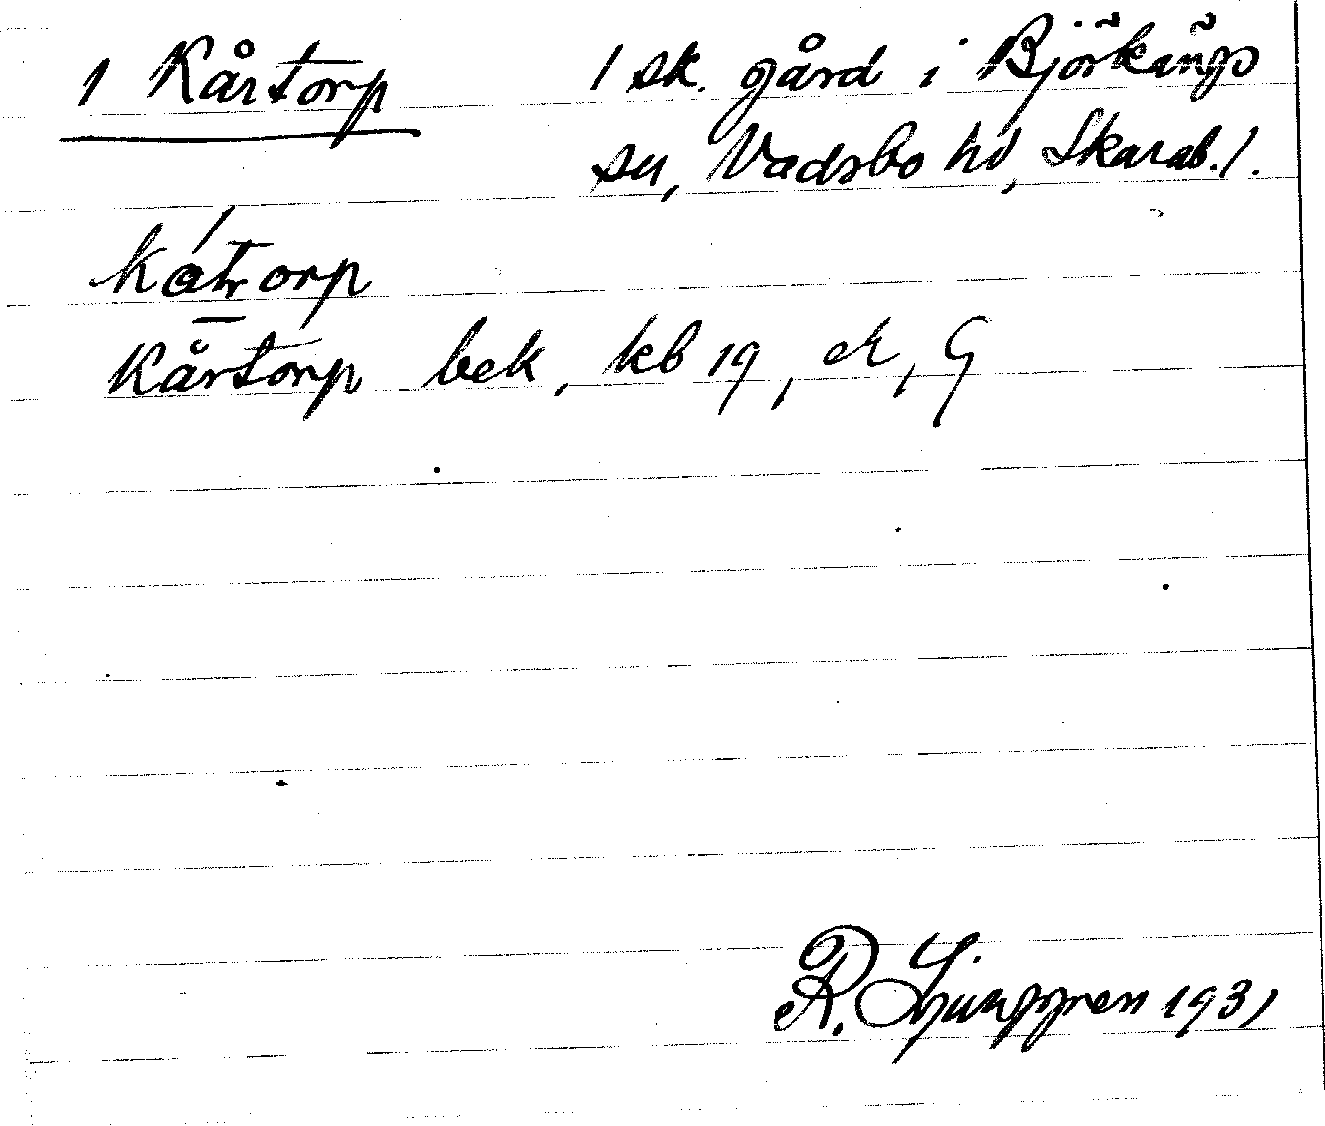 1 Kårtorp 1 sk. gård i Björkängs
sn, Vadsbo hd, Skarab. l.
kátorp
Kårtorp bek, kb 19, ek, G
R. Ljunggren 1931